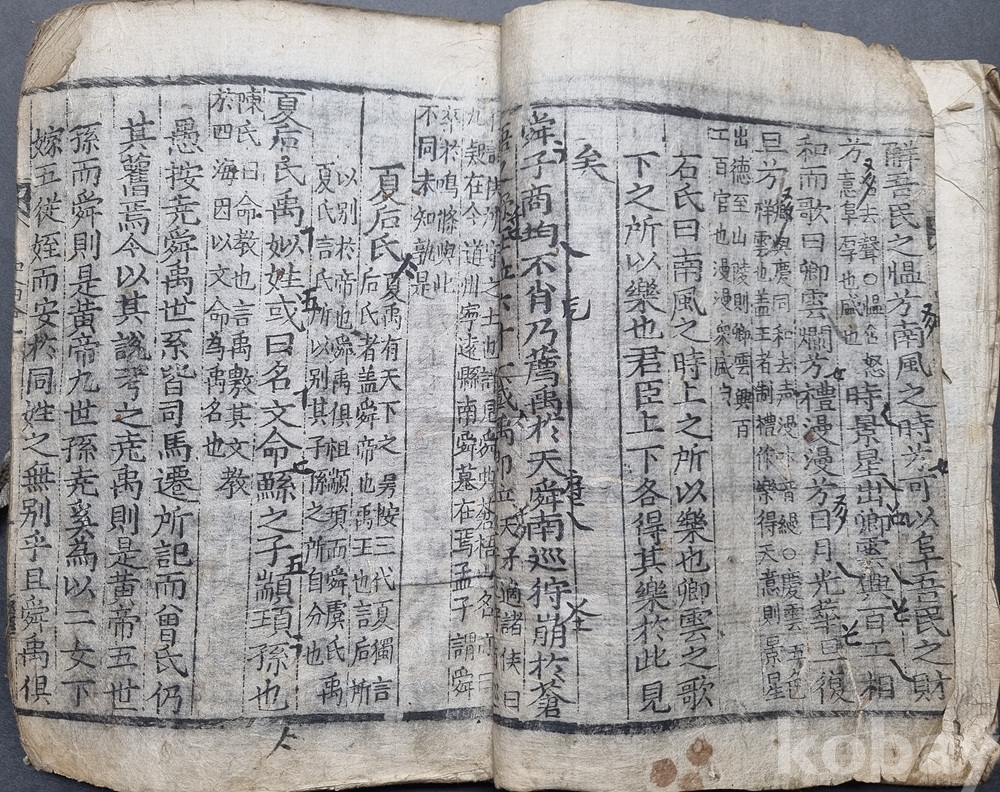 解吾民之慍兮南風之時兮可以阜吾民之財
兮去聲〇慍 怒意阜厚也盛也 時景星出卿雲興百工相
和而歌曰卿雲爛兮禮漫漫兮日月光華旦復
旦兮 卿與慶同和去声漫 音縵〇慶雲五色祥雲也盖王者制禮作樂得天意則景星
出德至山陵則卿雲興百工百官也漫漫
石氏曰南風之時上之所以樂也卿雲之歌
下之所以樂也君臣上下各得其樂於此見
矣
舜子商均不肖乃薦禹於天舜南巡狩崩於蒼
梧 禹卽位 天子適諸侯曰
九疑在今道州寧遠縣南舜墓在焉孟子謂舜
卒於鳴條與此不同未知孰是
夏后氏 夏禹有天下之号按三代夏獨言后氏者盖舜帝也禹王也言后所
以别於帝也舜禹俱祖顓頊而舜虞氏禹夏氏言氏所以别其子孫之所自分也
夏后氏禹姒姓或曰名文命鯀之子顓頊孫也
陳氏曰命教也言禹敷其文教於四海因以文命為禹名也
愚按尭舜禹世系皆司馬遷所記而曾氏仍
其舊焉今以其說考之尭禹則是黄帝五世
孫而舜則是黄帝九世孫尭奚為以二女下
嫁五從姪而安於同姓之無别乎且舜禹俱
kobay